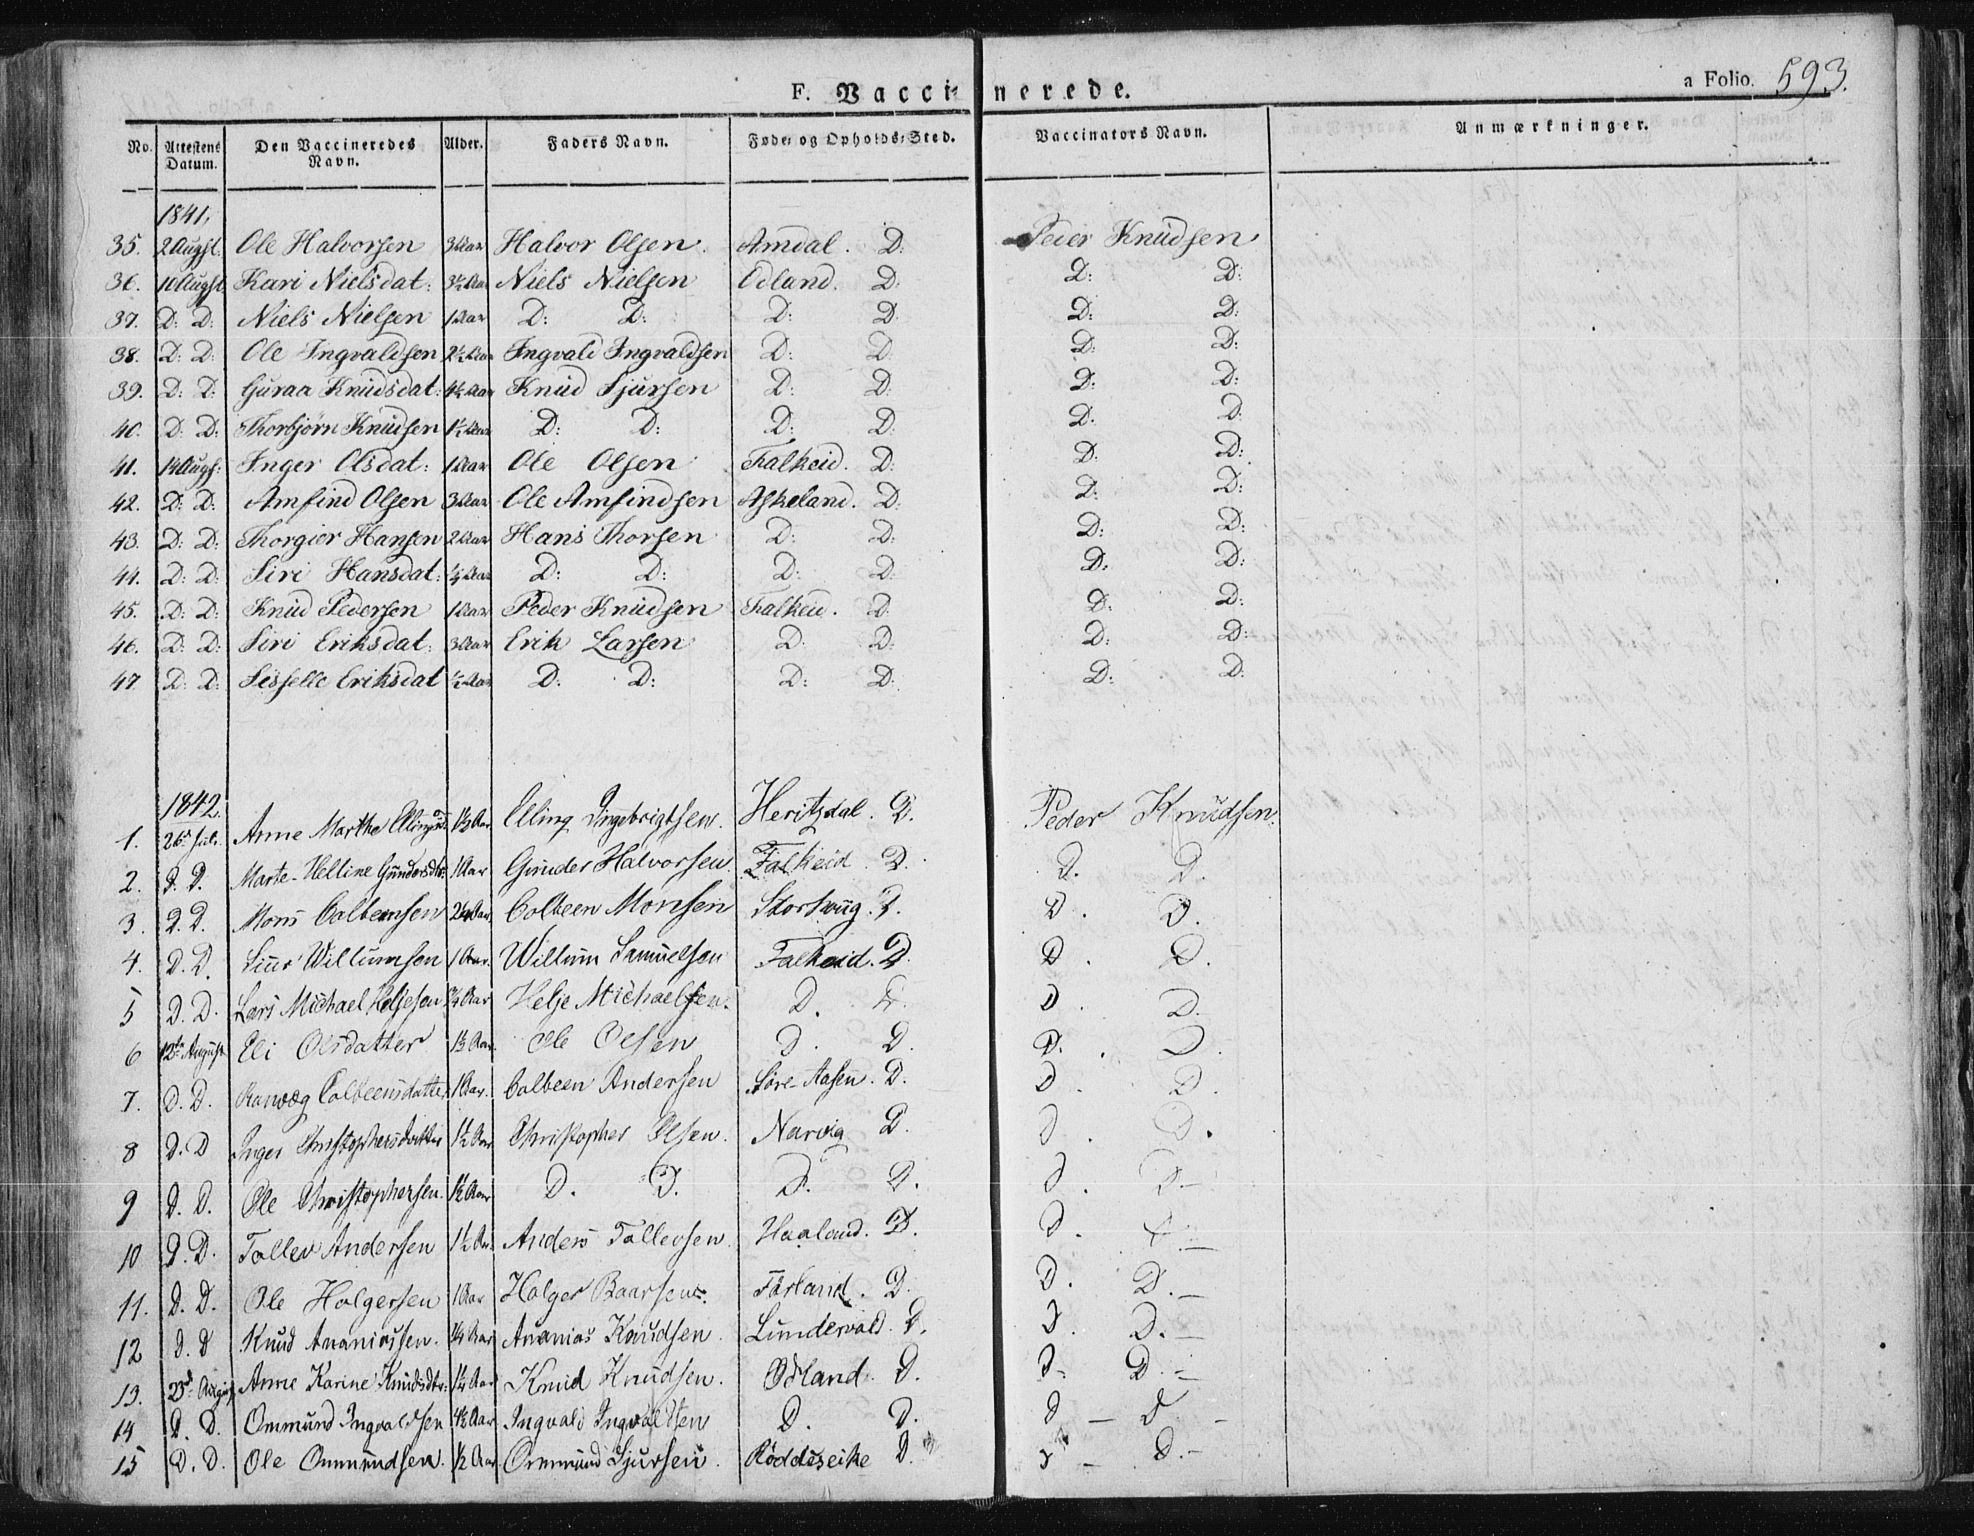 F. Vaccinerede.
a Folio. 593.
No. Attestens Datum. Den Vaccineredes Navn. Alder. Faders Navn. Føde- og Opholds-Sted. Vaccinators Navn. Anmærkninger.
1841.
35. 2 Augst. Ole Halvorsen 3 Aar Halvor Olsen. Amdal. D: Peder Knudsen
36. 10 Augst Kari Nielsdat: 3½ Aar Niels Nielsen Odland. D. D: D:
37. D: D: Niels Nielsen 1 Aar D: D: D: D. D: D:
38. D: D: Ole Ingvaldsen 2½ Aar Ingvald Ingvaldsen D: D. D: D:
39. D: D: Guraa Knudsdat: 4½ Aar Knud Sjursen D: D: D: D:
40. D: D: Thorbjørn Knudsen 1½ Aar D: D: D: D: D. D
41. 14 Augs: Inger Olsdat: 1 Aar Ole Olsen Falkeid. D: D: D:
42. D: D: Amfind Olsen 3 Aar Ole Amfindsen Askeland. D: D: D:
43. D: D: Thorgier Hansen 2 Aar Hans Thorsen D: D: D: D:
44. D: D: Siri Hansdat: ¼ Aar D: D: D: D: D. D:
45. D: D: Knud Pedersen 1 Aar Peder Knudsen Falkeid. D D: D:
46. D: D: Siri Eriksdat: 3 Aar Erik Larsen D. D: D: D:
47 D: D: Sisselle Eriksdat ½ Aar D: D: D: D: D: D:
1842.
1. 26. Juli. Anne Marthe Ellingsd. 1½ Aar Elling Ingebrigtsen. Heritzdal. D. Peder Knudsen.
2. D. D. Marte Helline Gundersdtr. 1 Aar Gunder Halvorsen. Falkeid. D. D. D.
3. D. D. Mons Colbeensen 2¼ Aar. Colbeen Monsen D. D. D.
4. D. D. Siur Willumsen 1 Aar. Willum Samuelsen Falkeid. D. D D.
5 D. D. Lars Michael Heljesen ¾ Aar Helje Michaelsen. D. D. D. D.
6 12te August Eli Olsdatter 1½ Aar Ole Olsen D. D. D. D.
7. D. D. Ranvæg Colbeensdatter 1 Aar. Colbeen Andersen Søre Aasen. D. D. D.
8 D. D Inger Christophersdatter 1½ Aar Christopher Olsen. Narvig D. D. D.
9 D. D. Ole Christophersen. 1½ Aar D. D. D. D. D. D.—
10 D. D. Tollev Andersen 1½ Aar. Anders Tollevsen. Haaland. D. D. D.—
11. D. D. Ole Holgersen 1 Aar Holger Baarsen. Førland. D. D. D.—
12 D. D Knud Ananiassen. 1¼ Aar Ananias Knudsen. Lundervald. D. D. D.—
13. 23d. August Anne Karine Knudsdtr. 1¼ Aar Knud Knudsen. Odland. D. D- D.—
14 D. D. Ommund Ingvaldsen 4½ Aar Ingvald Ingvaldsen D. D. D — D —
15 D. D. Ole Ommundsen. ½ Aar Ommund Sjursen. Røddeseike D. D — D.—